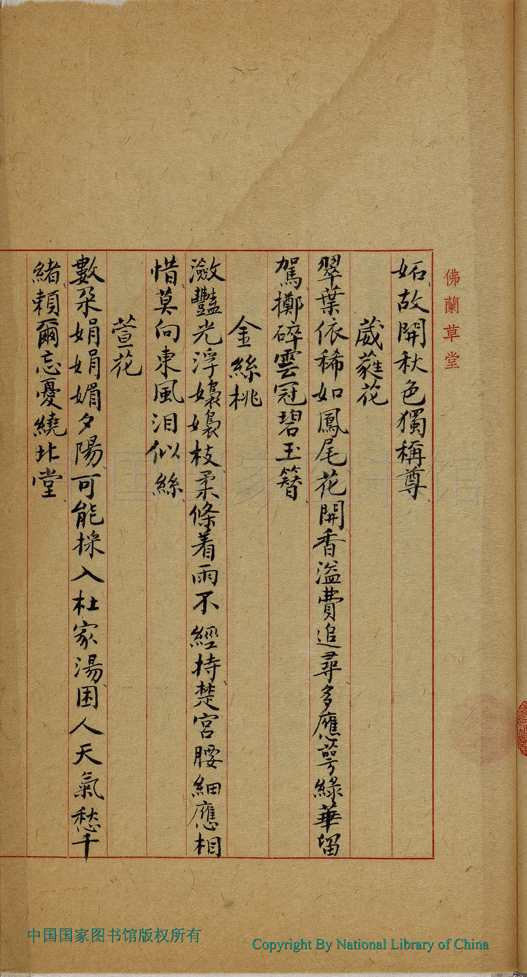 佛蘭草堂
妬故開秋色獨稱尊
葳蕤花
翠葉依稀如鳳尾花開香溢費追尋多應萼綠華留
駕擲碎雲冠碧玉簪
金絲桃
瀲豔光浮嬝嬝枝柔條着雨不經持楚宮腰細應相
惜莫向東風泪似絲
萱花
數朶娟娟媚夕陽可能採入杜家湯困人天氣愁千
緒賴爾忘憂繞北堂
中国国家图书馆版权所有
Copyright By National Library of China